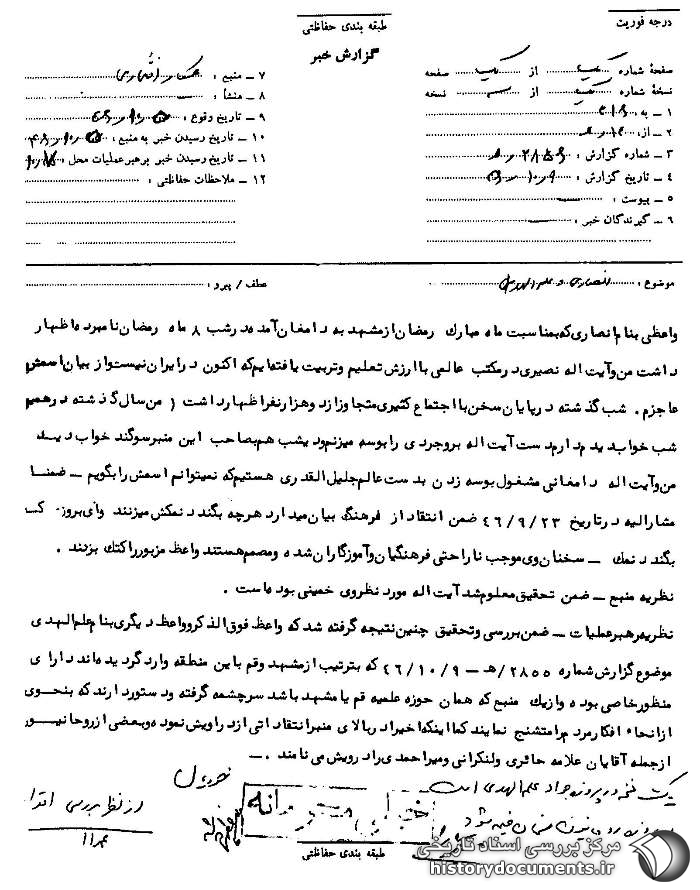 درجه فوریت
طبقه بندی حفاظتی
گزارش خبر
صفحهٔ شماره یک از یک صفحه
نسخهٔ شماره از نسخه
۱ ـ به : ۳۱۶
۲ ـ از :
۳ ـ شماره گزارش :
۴ ـ تاریخ گزارش :
۵ ـ پیوست :
۶ ـ گیرندگان خبر :
۷ ـ منبع :
۸ ـ منشأ :
۹ ـ تاریخ وقوع :
۱۰ ـ تاریخ رسیدن خبر به منبع :
۱۱ ـ تاریخ رسیدن خبر برهبر عملیات محل :
۱۲ ـ ملاحظات حفاظتی :
موضوع : انصاری و علم الهدی
عطف / پیرو :
واعظی بنام انصاری که بمناسبت ماه مبارک رمضان از مشهد به دامغان آمده در شب ۸ ماه رمضان نامبرده اظهار
داشت من و آیت اله نصیری در مکتب عالمی با ارزش تعلیم و تربیت یافته ایم که اکنون در ایران نیست و از بیان اسمش
عاجزم . شب گذشته در پایان سخن با اجتماع کثیری متجاوز از دو هزار نفر اظهار داشت ( من سال گذشته در همین
شب خواب دیدم دارم دست آیت اله بروجردی را بوسه میزنم دیشب هم بصاحب این منبر سوگند خواب دیدم
من و آیت اله دامغانی مشغول بوسه زدن بدست عالم جلیل القدری هستیم که نمیتوانم اسمش را بگویم ـ ضمنا
مشارالیه در تاریخ ۴۶/۹/۲۳ ضمن انتقاد از فرهنگ بیان میدارد هرچه بگندد نمکش میزنند وای بروزی که
بگندد نمک ـ سخنان وی موجب ناراحتی فرهنگیان و آموزگاران شده و مصمم هستند واعظ مزبور را کتک بزنند .
نظریه منبع ـ ضمن تحقیق معلوم شد آیت اله مورد نظر وی خمینی بوده است .
نظریه رهبر عملیات ـ ضمن بررسی و تحقیق چنین نتیجه گرفته شد که واعظ فوق الذکر و واعظ دیگری بنام علم الهدی
موضوع گزارش شماره ۲۸۵۵/هـ ـ ۴۶/۱۰/۹ که بترتیب از مشهد و قم باین منطقه وارد گردیده اند دارای
منظور خاصی بوده و از یک منبع که همان حوزه علمیه قم یا مشهد باشد سرچشمه گرفته و دستور دارند که بنحوی
از انحاء افکار مردم را متشنج نمایند کما اینکه اخیرا در بالای منبر انتقاداتی از دراویش نموده و بعضی از روحانیون
از جمله آقایان علامه حائری و لنکرانی و میراحمدی را درویش می نامند . ـ
یک نسخه در پرونده جواد علم الهدی است
از نظر بررسی
طبقه بندی حفاظتی
مرکز بررسی اسناد تاریخی
historydocuments.ir